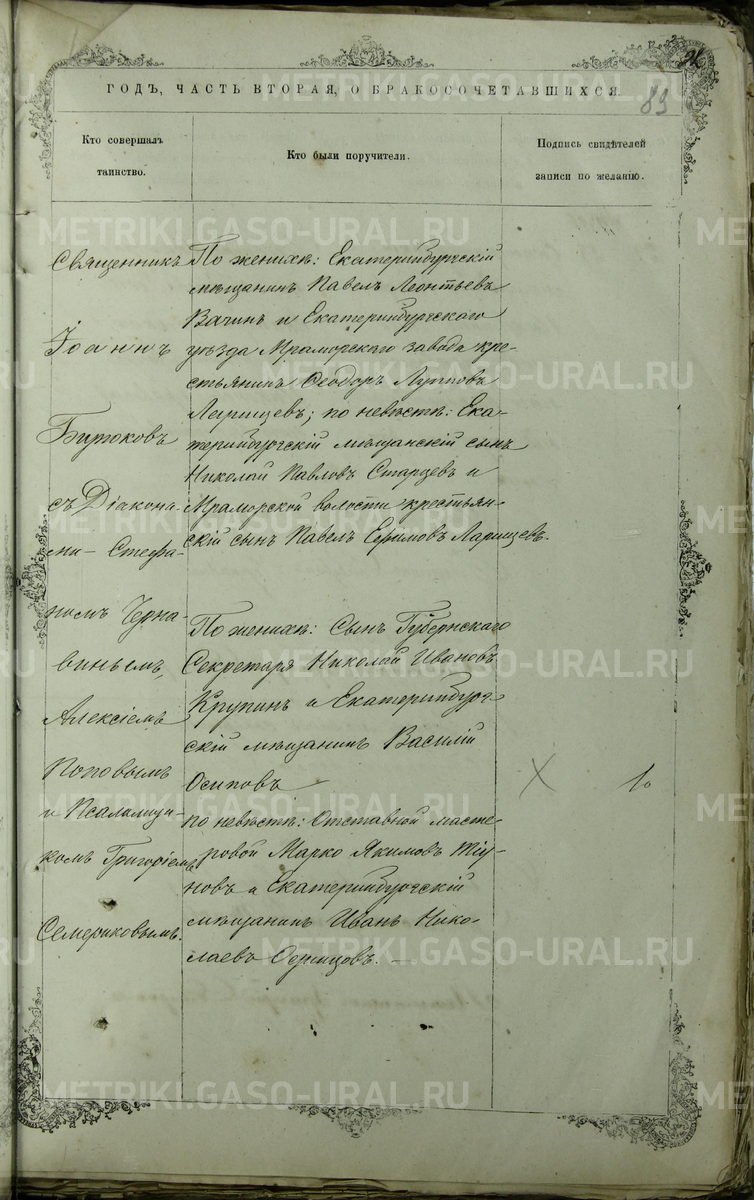 ГОДЪ, ЧАСТЬ ВТОРАЯ, О БРАКОСОЧЕТАВШИХСЯ.
83
Кто совершалъ
таинство.
Кто были поручители.
Подпись свидѣтелей
записи по желанію.
Священникъ
Іоаннъ
Бирюковъ
съ Діакона-
ми – Стефа-
номъ Черна-
винымъ,
Алексіемъ
Поповымъ
и Псаломщи-
комъ Григоріемъ
Семериковымъ.
По женихѣ: Екатеринбургскій
мѣщанинъ Павелъ Леонтьевъ
Вагинъ и Екатеринбургскаго
уѣзда Мраморскаго завода кре-
стьянинъ Ѳеодоръ Лупповъ
Ларищевъ; по невѣстѣ: Ека-
теринбургскій мѣщанскій сынъ
Николай Павловъ Старцевъ и
Мраморской волости крестьян-
скій сынъ Павелъ Ефимовъ Ларищевъ.
По женихѣ: Сынъ Губернскаго
Секретаря Николай Ивановъ
Крупинъ и Екатеринбург-
скій мѣщанинъ Василій
Осиповъ
по невѣстѣ: Отставной масте-
ровой Марко Якимовъ Тіу-
новъ и Екатеринбургскій
мѣщанинъ Иванъ Нико-
лаевъ
METRIKI.GASO-URAL.RU